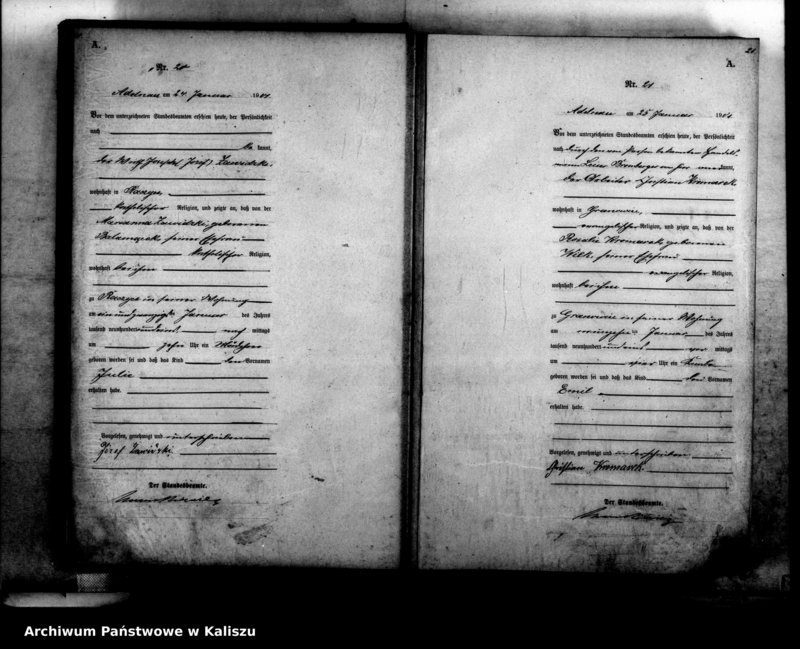 A.
Nr. 20
Adelnau am 24 Januar 1904
Vor dem unterzeichneten Standesbeamten erschien heute, der Persönlichkeit
nach
kannt,
der Josef
wohnhaft in
katholischer Religion, und zeigte an, daß von der
Marianna geborenen
seiner Ehefrau
katholischer Religion,
wohnhaft bei ihm
zu in seiner Wohnung
am ein und zwanzigsten Januar des Jahres
tausend neunhundert und vier nach mittags
um zehn Uhr ein Mädchen
geboren worden sei und daß das Kind den Vornamen
Julie
erhalten habe.
Vorgelesen, genehmigt und unterschrieben
Józef
Der Standesbeamte.
21
A.
Nr. 21
Adelnau am 25 Januar 1904
Vor dem unterzeichneten Standesbeamten erschien heute, der Persönlichkeit
nach durch den von Person bekannten Handels
mann
der Arbeiter Christian
wohnhaft in
evangelischer Religion, und zeigte an, daß von der
Rosalie geborenen
seiner Ehefrau
evangelischer Religion,
wohnhaft bei ihm
zu in seiner Wohnung
am Januar des Jahres
tausend neunhundert und vier vor mittags
um vier Uhr ein Knabe
geboren worden sei und daß das Kind den Vornamen
Emil
erhalten habe.
Vorgelesen, genehmigt und unterschrieben
Christian
Der Standesbeamte.
Archiwum Państwowe w Kaliszu